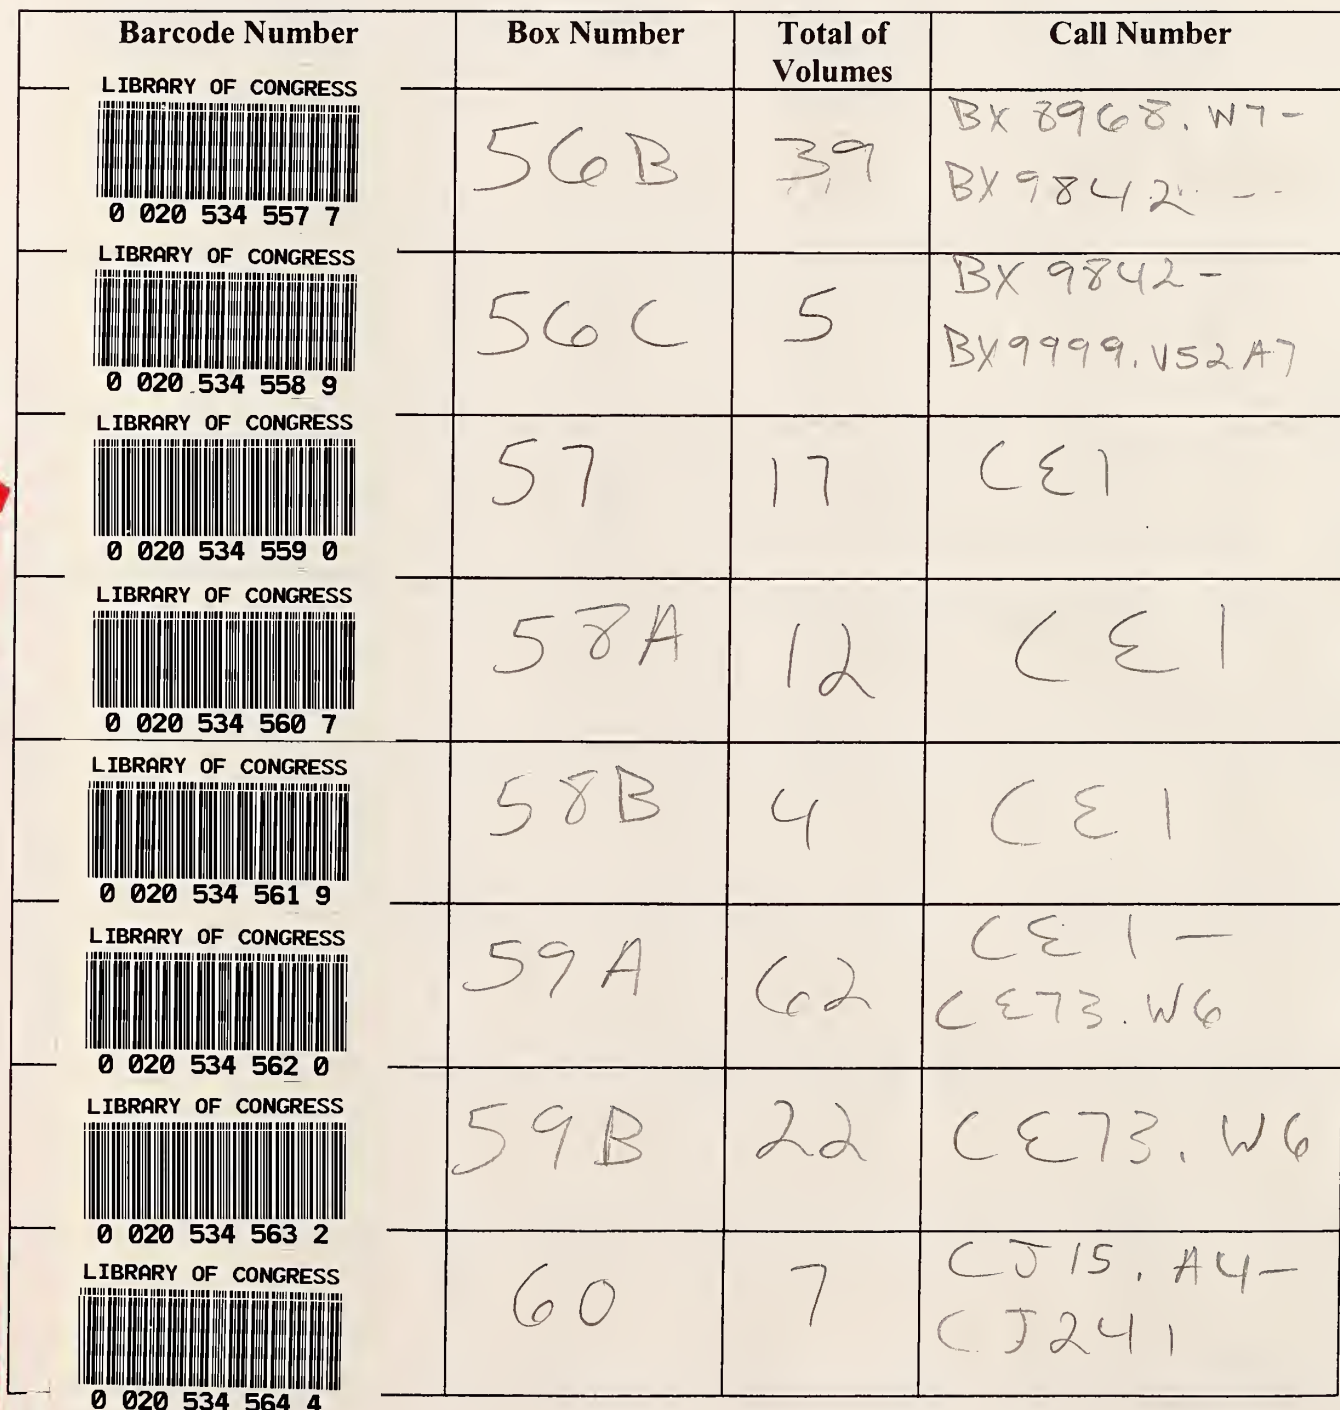 Barcode Number Box Number Total of Volumes Call Number
LIBRARY OF CONGRESS
0 020 534 557 7
56B
39
BX 8968. W7-
BX 9842 --
LIBRARY OF CONGRESS
0 020 534 558 9
56C
5
BX 9842-
BX9999.V52A7
LIBRARY OF CONGRESS
0 020 534 559 0
57
17
CE1
LIBRARY OF CONGRESS
0 020 534 560 7
58A
12
CE1
LIBRARY OF CONGRESS
0 020 534 561 9
58B
4
CE1
LIBRARY OF CONGRESS
0 020 534 562 0
59A
62
CE1-
CE73.W6
LIBRARY OF CONGRESS
0 020 534 563 2
59B
22
CE73.W6
LIBRARY OF CONGRESS
0 020 534 564 4
60
7
CJ15.A4-
CJ241